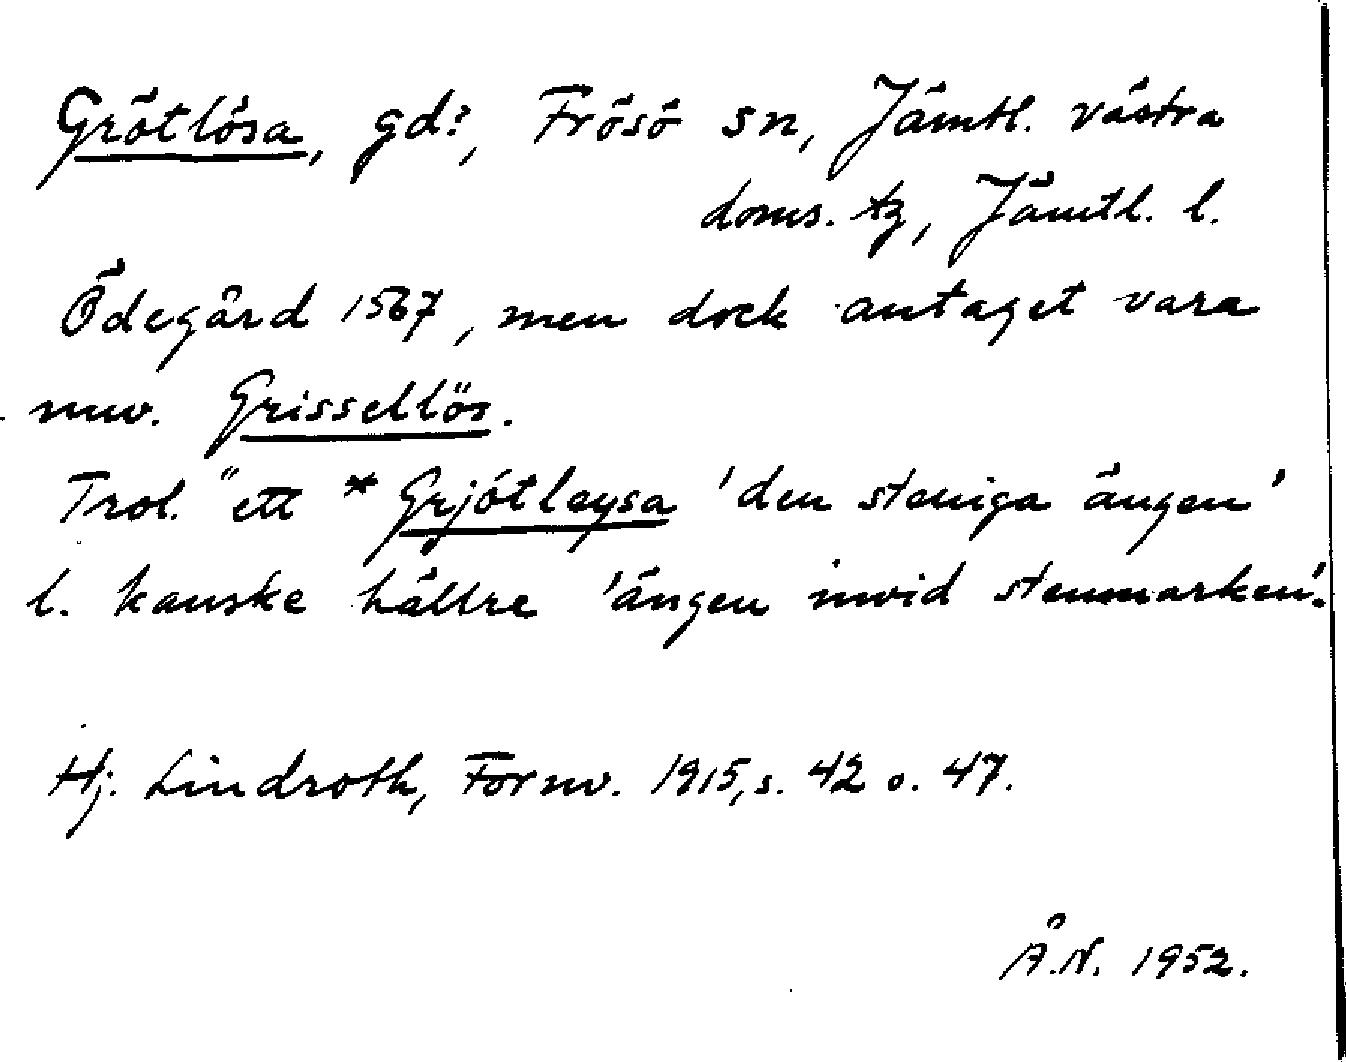 Grötlösa, gd?, Frösö sn, Jämtl. västra
doms. tg, Jämtl. l.
Ödegård 1567, men dock antaget vara
nuv. Grissellös.
Trol. "ett *Grjótleysa 'den steniga ängen'
l. kanske hällre 'ängen invid stenmarken'.
Hj. Lindroth, Fornv. 1915, s. 42 o. 47.
Å.N. 1952.